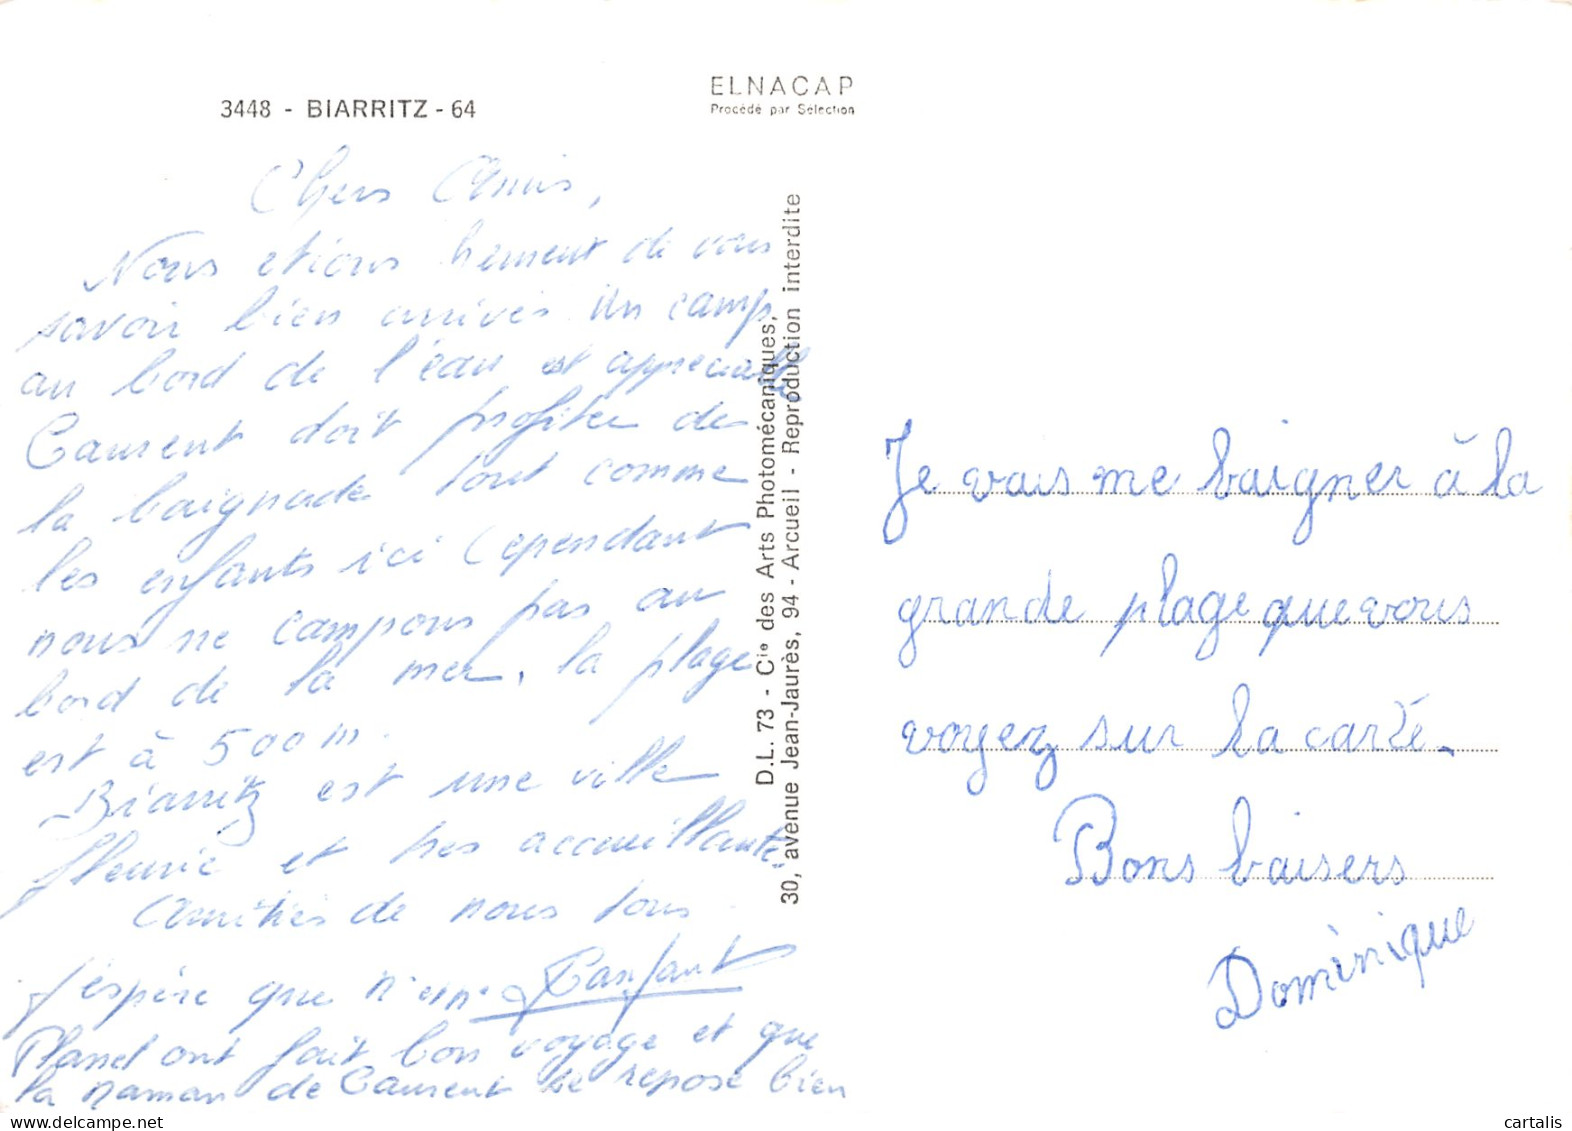 3448 - BIARRITZ - 64
ELNACAP
Procédé par Sélection
Chers Amis,
Nous etions de vous
savoir bien arrivés. Un camp
au bord de l'eau est appreciable
Laurent doit profiter de
la baignade tout comme
les enfants ici Cependant
nous ne campons pas au
bord de la mer, la plage
est à 500 m.
Biarritz est une ville
fleurie et tres accueillante.
Amitiés de nous tous
J'espère que
ont fait bon voyage et que
la maman de Laurent se repose bien
D.L. 73 - Cie des Arts Photomécaniques,
30, avenue Jean-Jaurès, 94 - Arcueil - Reproduction interdite
Je vais me baigner à la
grande plage que vous
voyez sur la carte.
Bons baisers
Dominique
cartalis